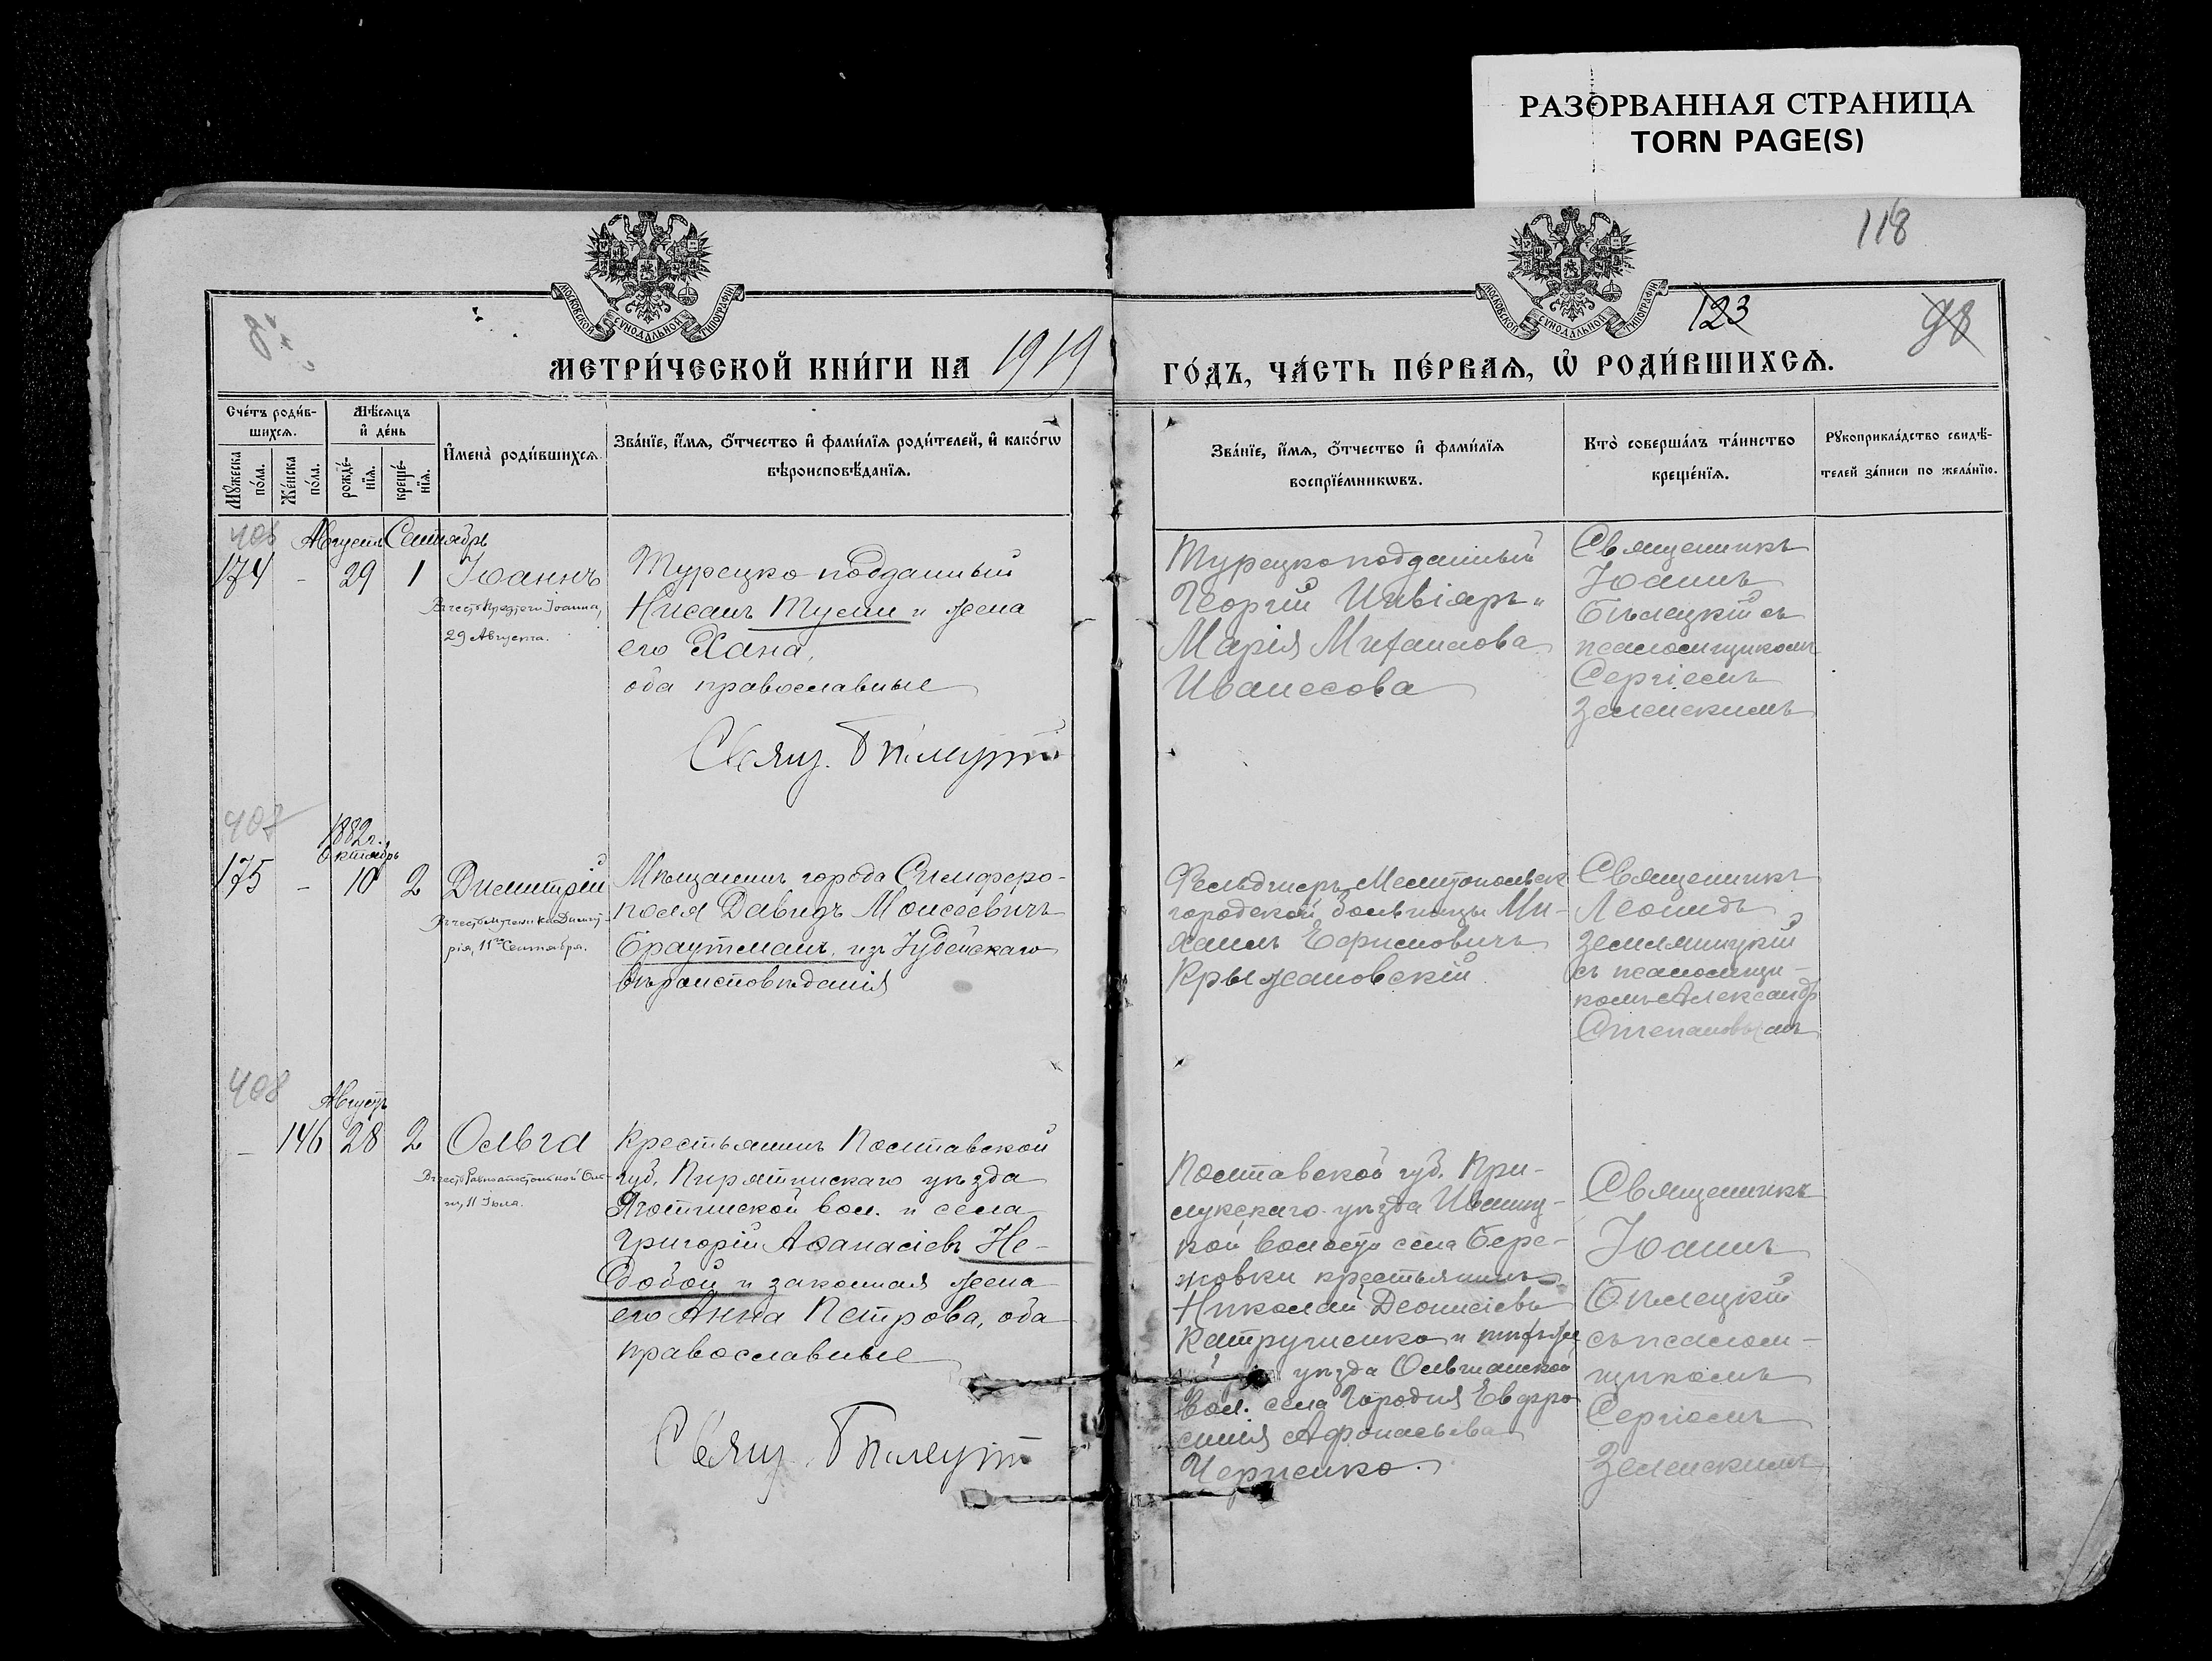 РАЗОРВАННАЯ СТРАНИЦА
TORN PAGE(S)
118
МОСКОВСКОЙ СѴНОДАЛЬНОЙ ТИПОГРАФІИ
МОСКОВСКОЙ СѴНОДАЛЬНОЙ ТИПОГРАФІИ
123
98
МЕТРИ́ЧЕСКОЙ КНИ́ГИ НА 1919
ГО́ДЪ, ЧА́СТЬ ПЕ́РВАѦ, Ѽ РОДИ́ВШИХСѦ.
Сче́тъ роди́в-
шихсѧ.
Мѣ́сѧцъ
и҆ де́нь
Мꙋ́жеска
по́ла.
Же́нска
по́ла.
рожде́-
нїѧ.
креще́-
нїѧ.
И҆мена̀ роди́вшихсѧ.
Зва́нїе, и҆́мѧ, ѻ҆́тчество и҆ фами́лїѧ роди́телей, и҆ како́гѡ
вѣроисповѣ́данїѧ.
Зва́нїе, и҆́мѧ, ѻ҆́тчество и҆ фами́лїѧ
воспрїе́мникѡвъ.
Кто̀ соверша́лъ та́инство
креще́нїѧ.
Рꙋкоприкла́дство свидѣ́-
телей за́писи по жела́нїю.
406
Августъ Сентябрь
174 - 29 1 Іоаннъ
Въ честь Предтечи Іоанна,
29 Августа.
Турецко-подданный
Нисанъ Тусли и жена
его Хана,
оба православные
Свящ. Бѣлецкій
Турецкоподданный
Георгій
Марія Михаилова
Иванесова
Священникъ
Іоаннъ
Бѣлецкій съ
псаломщикомъ
Сергіемъ
Зеленскимъ
407
1882 г.
Октябрь
175 - 10 2 Димитрій
Въ честь мученика Димит-
рія, 11го Сентября.
Мѣщанинъ города Симферо-
поля Давидъ Моисеевичъ
Браутманъ, изъ Іудейскаго
вѣроисповѣданія
Фельдшеръ Мелитопольск
городской больницы Ми-
хаилъ Ефимовичъ
Крыжановскій
Священникъ
Леонидъ
Земляницкій
съ псаломщи-
комъ Александр
Степановымъ
408
Августъ
- 146 28 2 Ольга
Въ честь Равноапостольной Оль-
ги, 11 Іюля.
Крестьянинъ Полтавской
губ. Пирятинскаго уѣзда
Яготинской вол. и села
Григорій Аѳанасіевъ Не-
добой и законная жена
его Анна Петрова, оба
православные
Свящ. Бѣлецкій
Полтавской губ. При-
лукскаго уѣзда Иваниц-
кой волости села Бере-
жовки крестьянинъ
Николай Деонисіевъ
Катрученко и той же
уѣзда Ольшанской
вол. села Городня Евфро
синія Афонасьева
Черненко.
Священникъ
Іоаннъ
Бѣлецкій
съ псалом-
щикомъ
Сергіемъ
Зеленскимъ